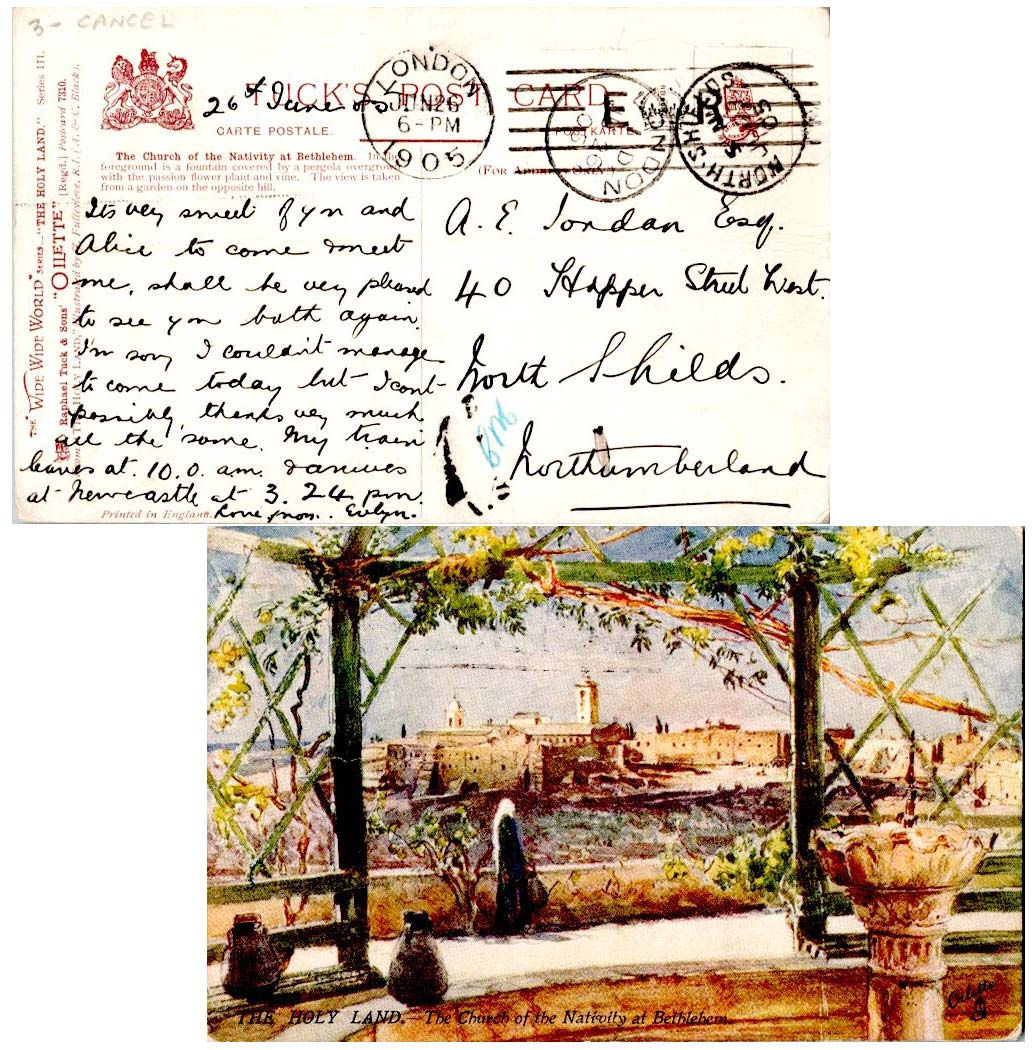 3 - CANCEL
TUCK'S POST CARD
CARTE POSTALE.
POSTKARTE
26th June 05
LONDON
JUN 26
6-PM
1905
E
LONDON
NORTH-SHIELDS
The Church of the Nativity at Bethlehem. In the
foreground is a fountain covered by a pergola overgrown
with the passion flower plant and vine. The view is taken
from a garden on the opposite hill.
(For Address Only.)
THE "WIDE WIDE WORLD" SERIES—"THE HOLY LAND," Series III.
Raphael Tuck & Sons' "OILETTE" [Regd.] Postcard 7310.
Its very sweet of you and
Alice to come & meet
me, shall be very pleased
to see you both again.
I'm sorry I couldn't manage
to come today but I cont
possibly, thanks very much
all the same. My train
leaves at 10.0. a.m. & arrives
at Newcastle at 3.24 pm.
Love from. Evelyn.
A. E. Jordan Esq.
40 Hopper Street West.
North Shilds.
Northumberland
Printed in England.
THE HOLY LAND.— The Church of the Nativity at Bethlehem.
Oilette